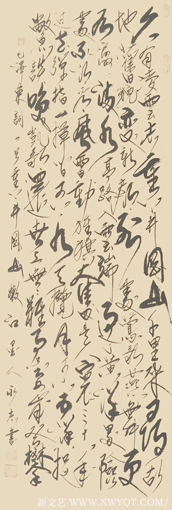 久有凌云志重上井冈山千里来寻故
地旧貌变新颜到处莺歌燕舞更
有潺潺流水高路入云端过了黄洋界险
处不须看风雷动旌旗奋是人寰三十八年
过去弹指一挥间可上九天揽月可下五洋捉
鳖谈笑凯歌还世上无难事只要肯登攀
毛泽东词一首重上井冈山
新文艺 WWW.XWYQT.COM